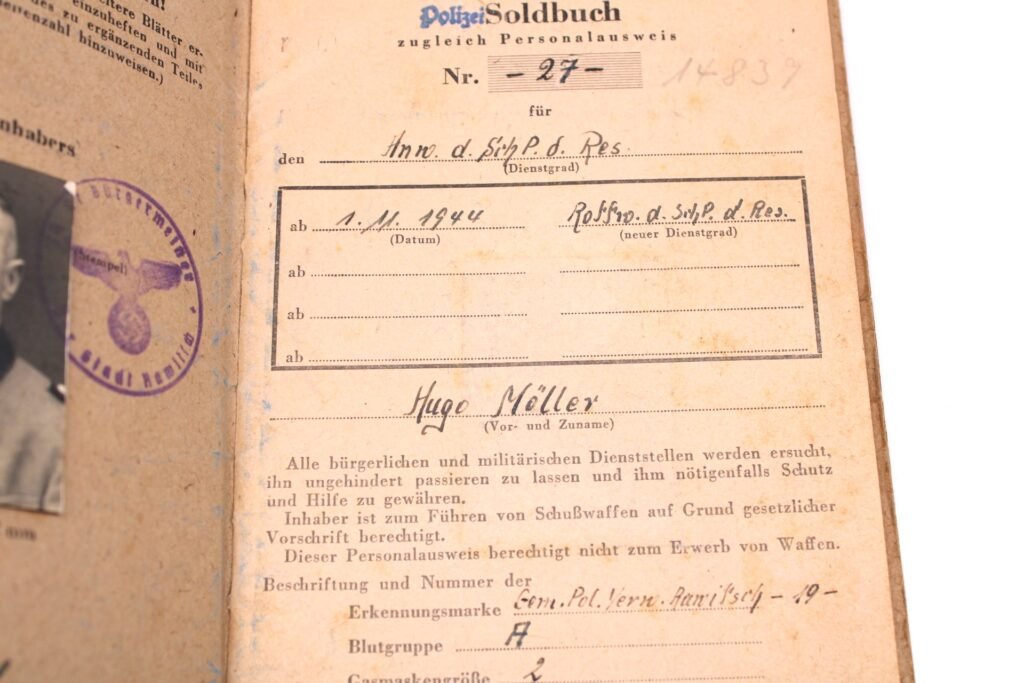 itere Blätter er-
einzuheften und mit
des zu ergänzenden Teiles
eitenzahl hinzuweisen.)
nhabers
Bürgermeister
(Stempel)
Stadt Rawitsch
Polizei Soldbuch
zugleich Personalausweis
Nr. - 27 - 14839
für
den Anw. d. SchP. d. Res.
(Dienstgrad)
ab 1. 11. 1944 Rottw. d. SchP. d. Res.
(Datum) (neuer Dienstgrad)
ab
ab
ab
Hugo Möller
(Vor- und Zuname)
Alle bürgerlichen und militärischen Dienststellen werden ersucht,
ihn ungehindert passieren zu lassen und ihm nötigenfalls Schutz
und Hilfe zu gewähren.
Inhaber ist zum Führen von Schußwaffen auf Grund gesetzlicher
Vorschrift berechtigt.
Dieser Personalausweis berechtigt nicht zum Erwerb von Waffen.
Beschriftung und Nummer der
Erkennungsmarke Gem. Pol. Verw. Rawitsch - 19 -
Blutgruppe A
Gasmaskengröße 2